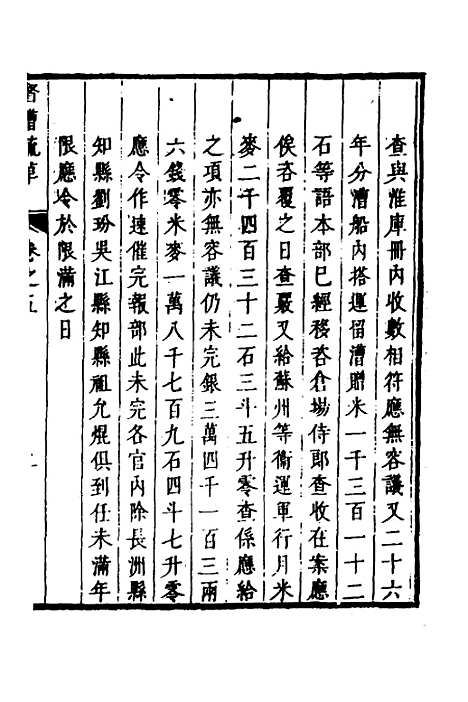 查與淮庫冊內收數相符應無容議又二十六
年分漕船內搭運留漕贈米一千三百一十二
石等語本部已經移咨倉場侍郎查收在案應
俟咨覆之日查覈又給蘇州等衞運軍行月米
麥二千四百三十二石三斗五升零查係應給
之項亦無容議仍未完銀三萬四千一百三兩
六錢零米麥一萬八千七百九石四斗七升零
應令作速催完報部此未完各官內除長洲縣
知縣劉玢吳江縣知縣祖允焜俱到任未滿年
限應令於限滿之日
督漕疏草
卷之五